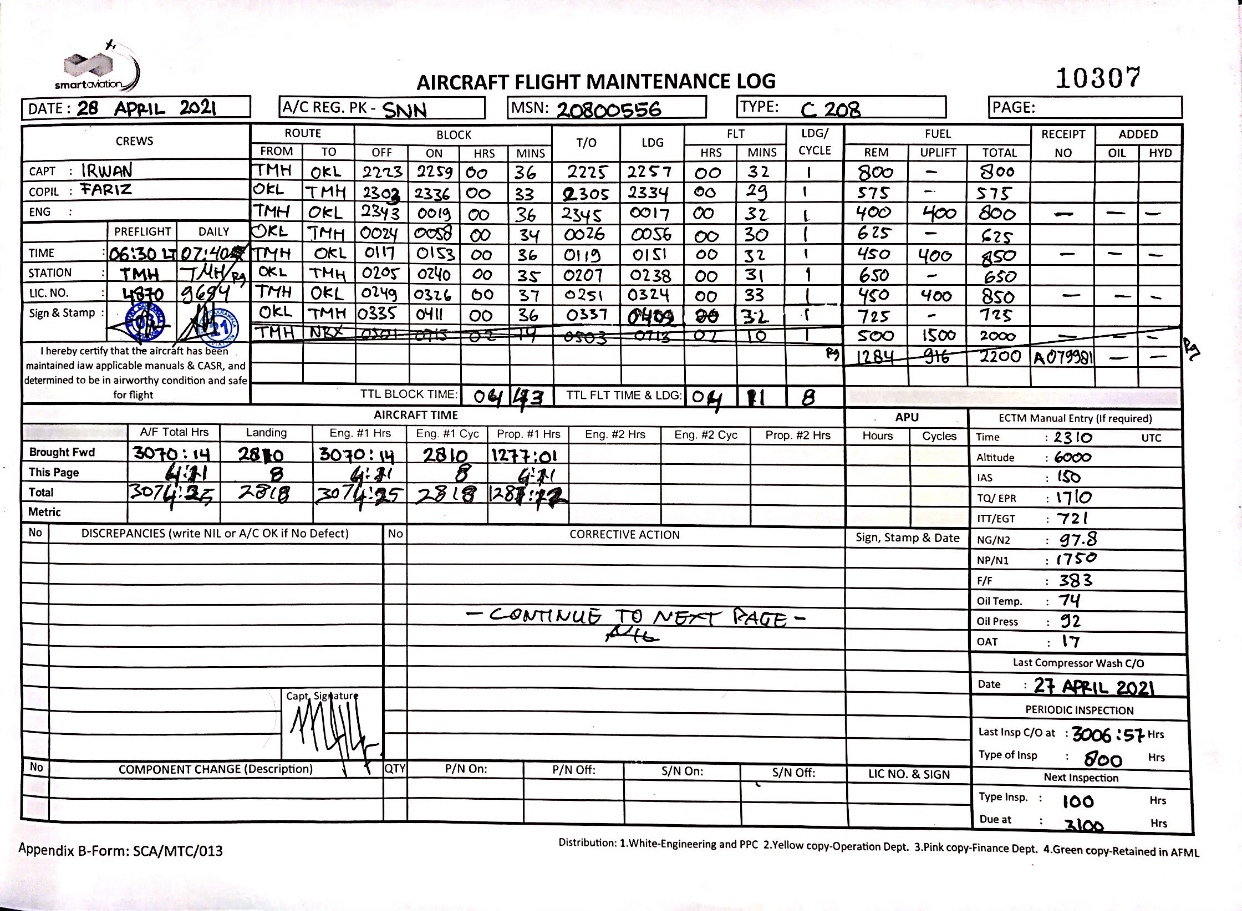 smartaviation
AIRCRAFT FLIGHT MAINTENANCE LOG
10307
DATE : 28 APRIL 2021
A/C REG. PK - SNN
MSN: 20800556
TYPE: C 208
PAGE:
CREWS ROUTE BLOCK T/O LDG FLT LDG/ CYCLE FUEL RECEIPT NO ADDED
FROM TO OFF ON HRS MINS HRS MINS REM UPLIFT TOTAL OIL HYD
CAPT : IRWAN TMH OKL 2223 2259 00 36 2225 2257 00 32 1 800 - 800
COPIL : FARIZ OKL TMH 2303 2336 00 33 2305 2334 00 29 1 575 - 575
ENG : TMH OKL 2343 0019 00 36 2345 0017 00 32 1 400 400 800 - - -
PREFLIGHT DAILY OKL TMH 0024 0058 00 34 0026 0056 00 30 1 625 - 625
TIME : 06:30 LT 07:40 TMH OKL 0117 0153 00 36 0119 0151 00 32 1 450 400 850 - - -
STATION : TMH TMH OKL TMH 0205 0240 00 35 0207 0238 00 31 1 650 - 650
LIC. NO. : 4870 9684 TMH OKL 0249 0326 00 37 0251 0324 00 33 1 450 400 850 - - -
Sign & Stamp : OKL TMH 0335 0411 00 36 0337 0409 00 32 1 725 - 725
TMH NRX 0501 0715 02 14 0503 0713 02 10 1 500 1500 2000
1284 916 2200 A079981 - -
I hereby certify that the aircraft has been
maintained law applicable manuals & CASR, and
determined to be in airworthy condition and safe
for flight
TTL BLOCK TIME: 04 43 TTL FLT TIME & LDG: 04 11 8
AIRCRAFT TIME APU ECTM Manual Entry (If required)
A/F Total Hrs Landing Eng. #1 Hrs Eng. #1 Cyc Prop. #1 Hrs Eng. #2 Hrs Eng. #2 Cyc Prop. #2 Hrs Hours Cycles
Brought Fwd 3070:14 2810 3070:14 2810 1277:01
This Page 4:11 8 4:11 8 4:11
Total 3074:25 2818 3074:25 2818
Metric
Time : 2310 UTC
Altitude : 6000
IAS : 150
TQ/ EPR : 1710
ITT/EGT : 721
NG/N2 : 97.8
NP/N1 : 1750
F/F : 383
Oil Temp. : 74
Oil Press : 92
OAT : 17
No DISCREPANCIES (write NIL or A/C OK if No Defect) No CORRECTIVE ACTION Sign, Stamp & Date
- CONTINUE TO NEXT PAGE -
Capt, Signature
Last Compressor Wash C/O
Date : 27 APRIL 2021
PERIODIC INSPECTION
Last Insp C/O at : 3006:57 Hrs
Type of Insp : 800 Hrs
Next Inspection
Type Insp. : 100 Hrs
Due at : 3100 Hrs
No COMPONENT CHANGE (Description) QTY P/N On: P/N Off: S/N On: S/N Off: LIC NO. & SIGN
Appendix B-Form: SCA/MTC/013
Distribution: 1.White-Engineering and PPC 2.Yellow copy-Operation Dept. 3.Pink copy-Finance Dept. 4.Green copy-Retained in AFML